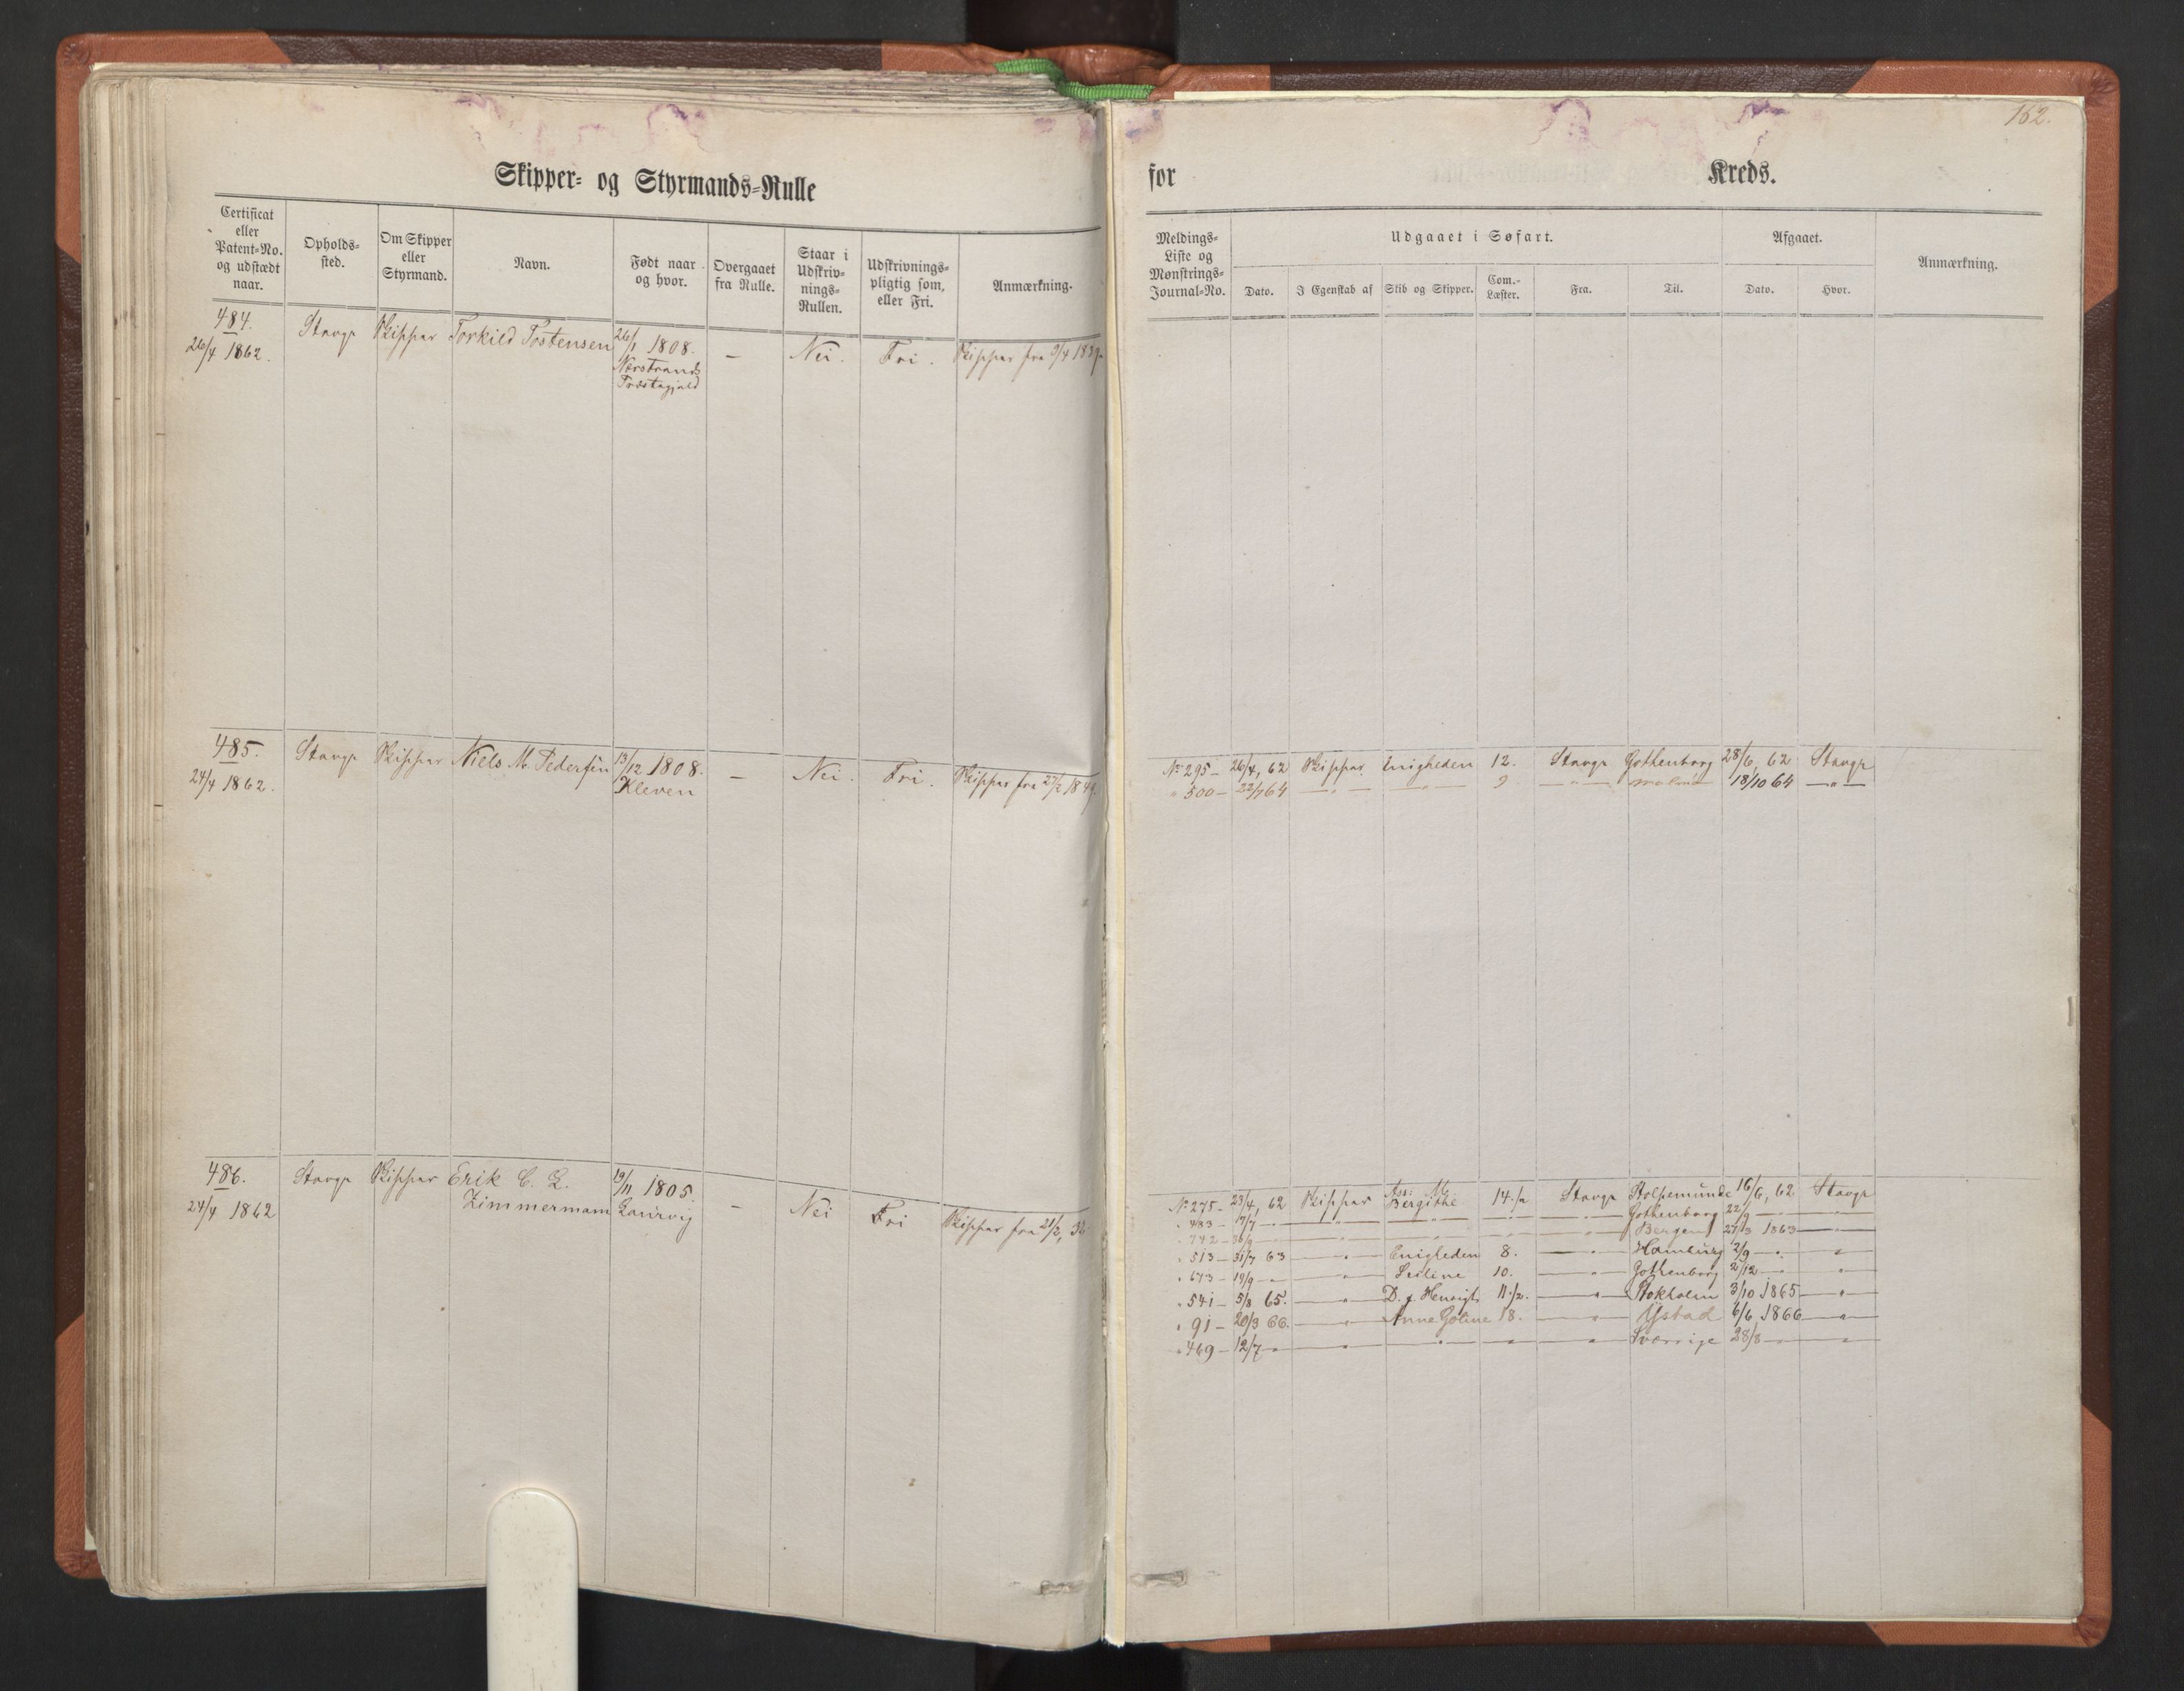 Skipper- og Styrmands-Rulle
Certificat eller Patent-No. og udstædt naar.
Opholds-sted.
Om Skipper eller Styrmand.
Navn.
Født naar og hvor.
Overgaaet fra Rulle.
Staar i Udskriv-nings-Rullen.
Udskrivnings-pligtig som, eller Fri.
Anmærkning.
484. Stavgr Skipper Torkild Tostensen 26/1 1808. — Nei. Fri. Skipper fra 9/4 1839
26/4 1862. Nerstrands
Præstegjeld
485. Stavgr Skipper Niels M. Pedersen 13/12 1808. — Nei. Fri. Skipper fra 27/2 184
24/4 1862. Kleven
486. Stavgr Skipper Erik C. L. 19/11 1805. — Nei Fri Skipper fra 21/2, 32
24/4 1862 Zimmermann Laurvig
162.
for Kreds.
Meldings-Liste og Mønstrings-Journal-No.
Udgaaet i Søfart.
Dato.
I Egenskab af
Skib og Skipper.
Com.-Læster.
Fra.
Til.
Afgaaet.
Dato.
Hvor.
Anmærkning.
No 295 — 26/4, 62 Skipper Enigheden 12. Stavgr Gothenborg 28/6, 62 Stavgr
" 500 — 22/7 64 — " — — " — 9 — " — Malmø 18/10 64 — " —
No 275 — 23/4, 62 Skipper Bergithe 14 1/2 Stavgr Stolpemünde 16/6, 62 Stavgr
" 483 — 17/7 — " — Gothenborg 22/9 — " —
" 742 — 30/9 — " — Bergen 27/3 1863 — " —
" 513 — 31/7 63 — " — Enigheden 8. — " — Hamburg 2/9 — " — "
" 673 — 19/9 — " — " — 10. — " — Gothenborg 2/12 — " — "
" 541 — 5/8 65. — " — 11 1/2. — " — Stokholm 3/10 1865 — " —
" 91 — 20/3 66. — " — Anne Goline 18. — " — Ystad 6/6 1866 — " —
" 469 — 12/7 — " — " — " — " — " — Sverrige 28/8 — " —